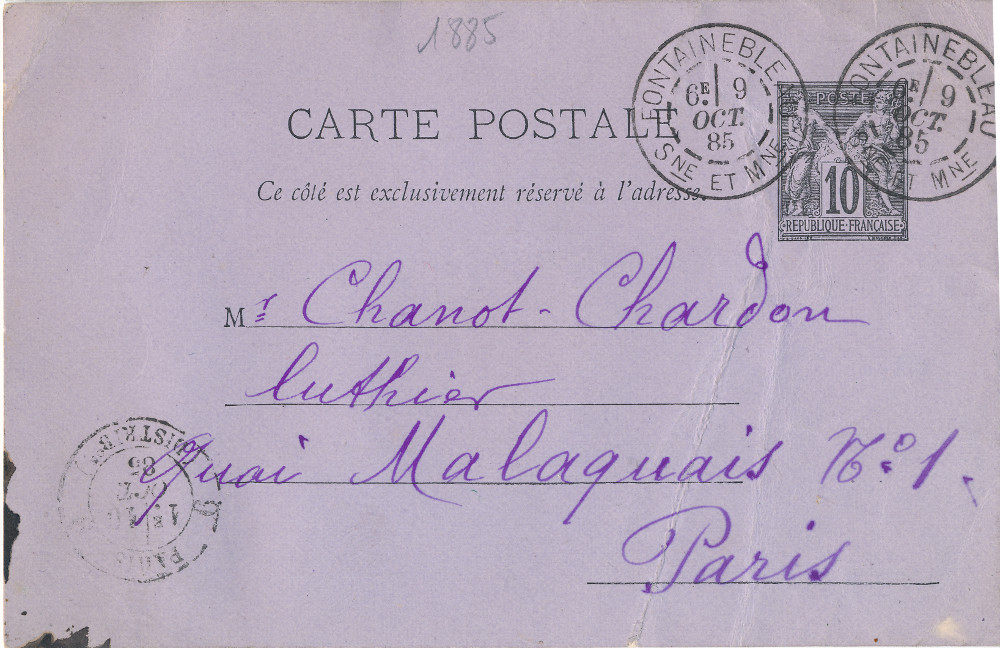 1885
FONTAINEBLEAU
6E 9
OCT.
85
SNE ET MNE
FONTAINEBLEAU
6E 9
OCT.
85
SNE ET MNE
POSTE
10
REPUBLIQUE·FRANÇAISE
CARTE POSTALE
Ce côté est exclusivement réservé à l'adresse.
Mr Chanot-Chardon
luthier
Quai Malaquais No 1.
Paris
PARIS
1E
OCT
85